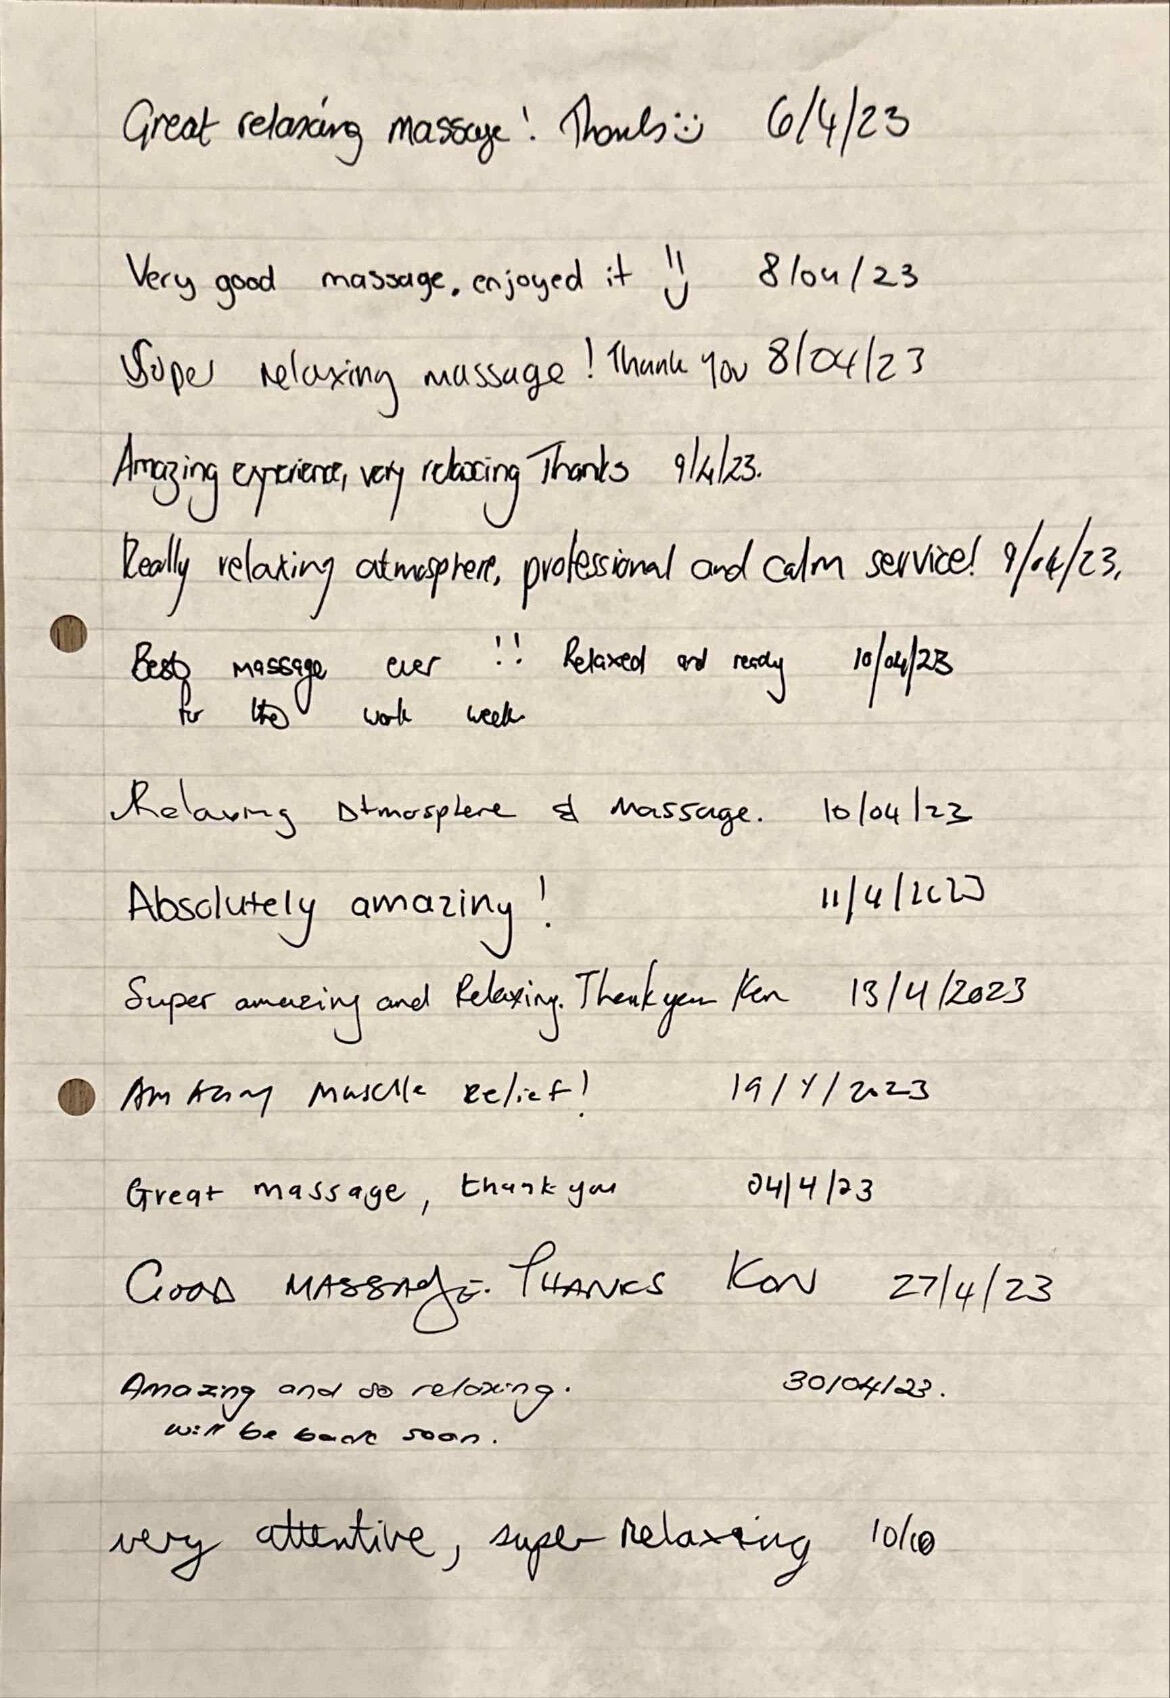 Great relaxing massage! Thanks :) 6/4/23
Very good massage, enjoyed it :) 8/04/23
Super relaxing massage! Thank you 8/04/23
Amazing experience, very relaxing Thanks 9/4/23.
Really relaxing atmosphere, professional and calm service! 9/04/23,
Best massage ever !! Relaxed and ready 10/04/23
for the work week
Relaxing Atmosphere & Massage. 10/04/23
Absolutely amazing! 11/4/2023
Super amazing and Relaxing. Thank you Ken 13/4/2023
Amazing Muscle Relief! 19/4/2023
Great massage, thank you 04/4/23
GOOD MASSAGE. THANKS KON 27/4/23
Amazing and so relaxing. 30/04/23.
will be back soon.
very attentive, super relaxing 10/10